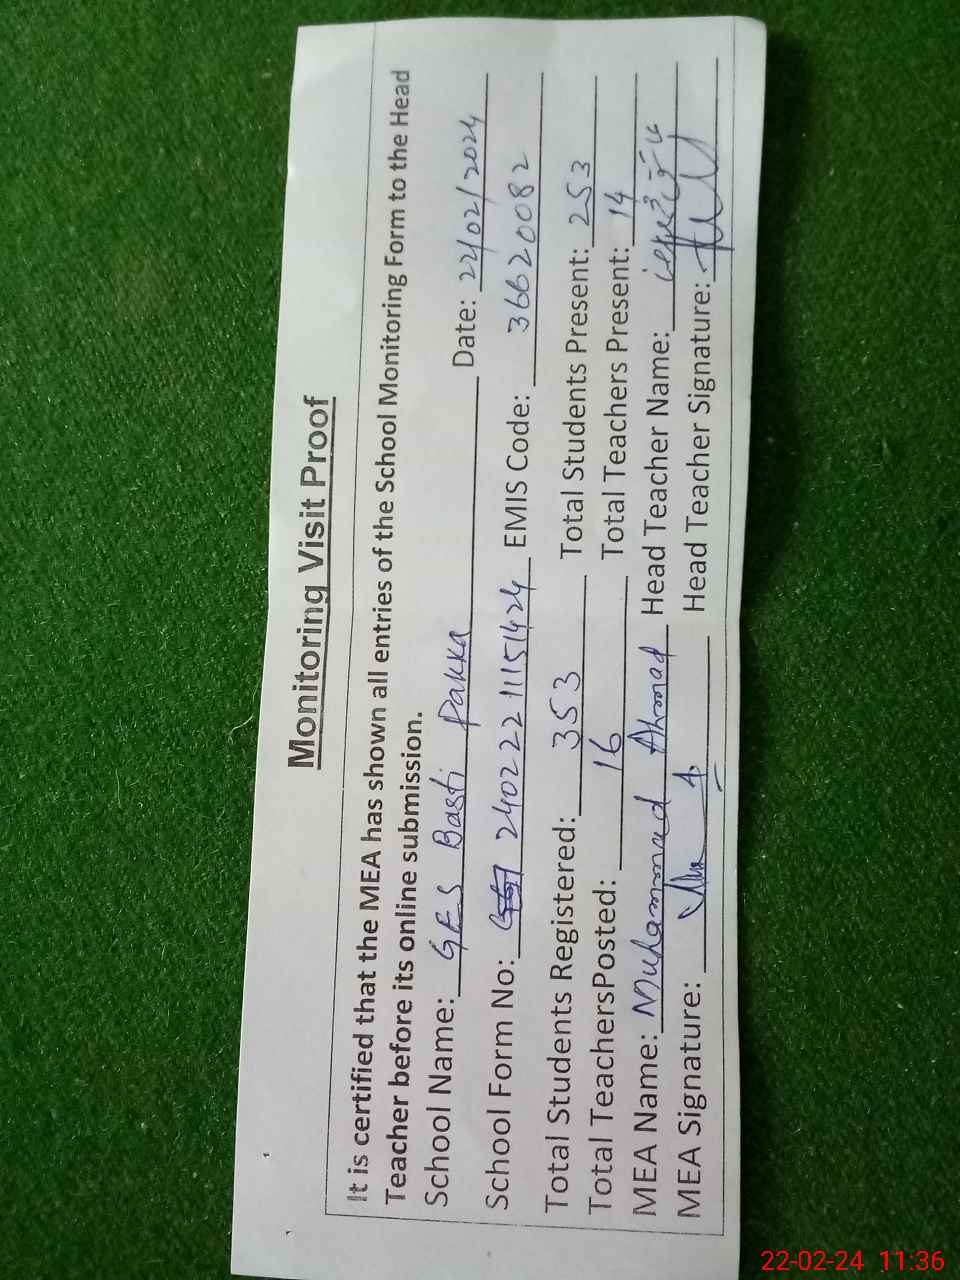 Monitoring Visit Proof
It is certified that the MEA has shown all entries of the School Monitoring Form to the Head
Teacher before its online submission.
School Name: GES Basti Pakka Date: 22/02/2024
School Form No: 24022211151424 EMIS Code: 36620082
Total Students Registered: 353 Total Students Present: 253
Total TeachersPosted: 16 Total Teachers Present: 14
MEA Name: Muhammad Ahmad Head Teacher Name:
MEA Signature: Head Teacher Signature:
22-02-24 11:36